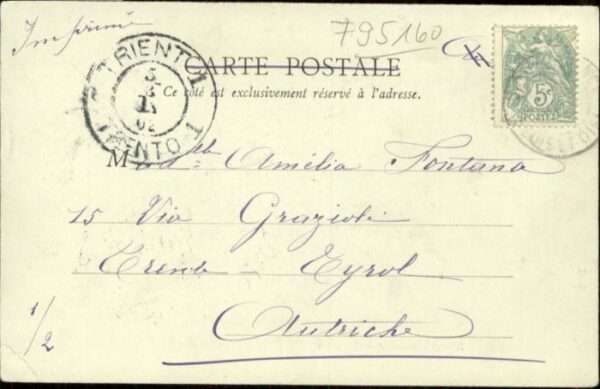 Imprimé
795160
TRIENT 1
5
3
02
TRENTO 1
CARTE POSTALE
Ce côté est exclusivement réservé à l'adresse.
5c
POSTES
M Amélia Fontana
15 Via Grazioli
Trento - Tyrol
Autriche
1/2